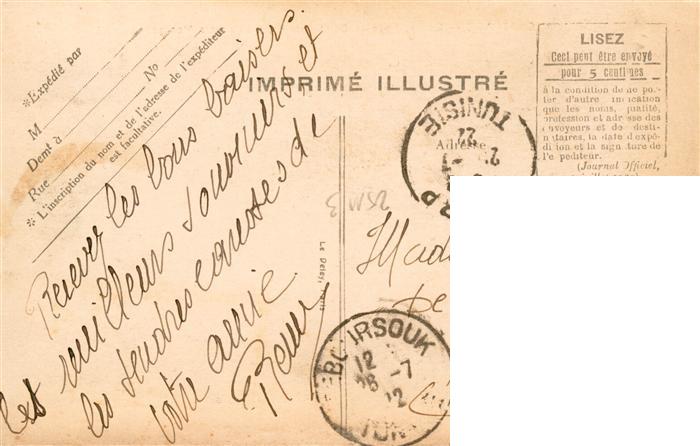 *Expédié par
M
No
Demt à
Rue
* L'inscription du nom et de l'adresse de l'expéditeur
est facultative.
IMPRIMÉ ILLUSTRÉ
LISEZ
Ceci peut être envoyé
pour 5 centimes
à la condition de ne por-
ter d'autre indication
que les noms, qualité,
profession et adresse des
envoyeurs et de desti-
nataires, la date d'expé-
dition et la signature de
l'e péditeur.
(Journal Officiel,
Adresse
TUNISIE
22
Recevez les bons baisers
les meilleurs souvenirs, et
les tendres caresses de
votre amie
Le Deley,
Mad
De
BOURSOUK
12
26 -7
22
TUN